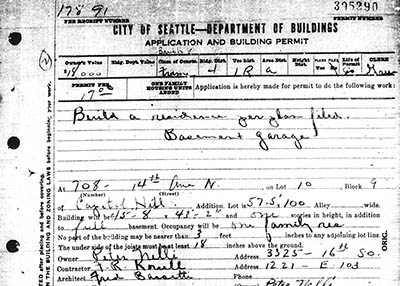 17891 395290
PER RECEIPT NUMBER PERMIT NUMBER
CITY OF SEATTLE—DEPARTMENT OF BUILDINGS
APPLICATION AND BUILDING PERMIT
Owner's Value Bldg. Dept. Value Class of Constr. Bldg. Class Use Dist. Area Dist. Height Dist. Life of Permit CLERK
18,000 Frame 4 1 R a
PERMIT FEE ONE FAMILY HOUSING UNITS ADDED Application is hereby made for permit to do the following work:
Build a residence per plan files.
Basement Garage
At 708- 14th Ave N. on Lot 10 Block 9
(Number) (Street)
of Capitol Hill Addition. Lot is 57.5 x 100 Alley wide.
Building will be 45-8 x 43'-2" and one stories in height, in addition
to full basement. Occupancy will be one family res
No part of the building may be nearer than 3 feet inches to any adjoining property line.
The under side of the joists must be at least 18 inches above the ground.
Owner Peter Address 3325-16th So.
Contractor Address 1221 - E 103
Architect Fred Bassetti Phone
IN THE BUILDING AND ZONING LAWS before beginning your work.
ORIG.